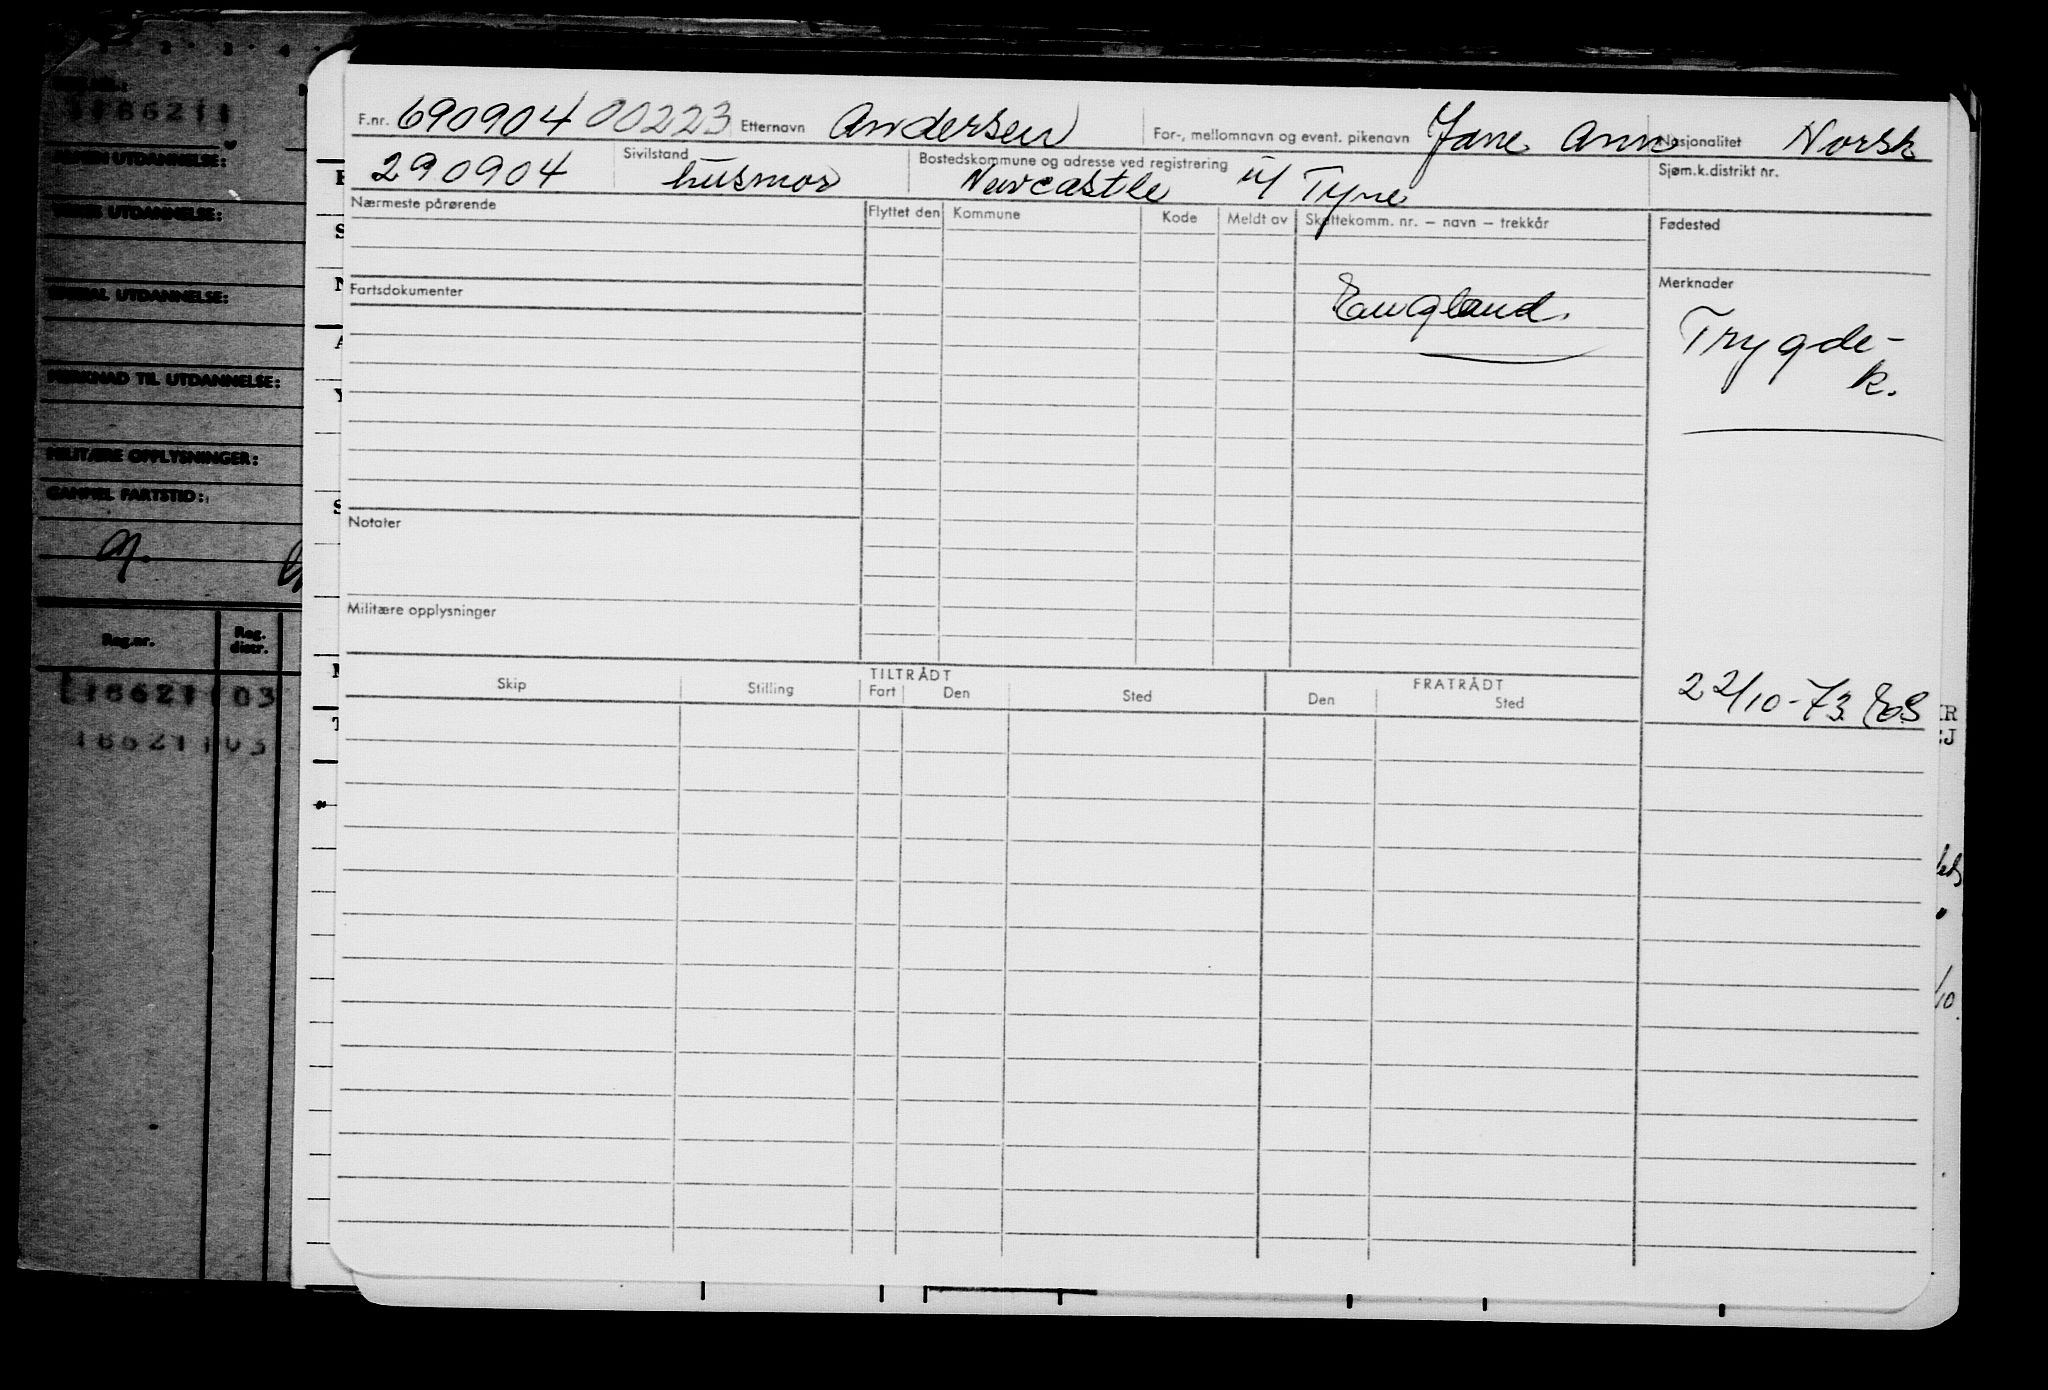 F.nr. 690904 00223 Etternavn Andersen For-, mellomnavn og event. pikenavn Jane Ann Nasjonalitet Norsk
290904 Sivilstand husmor Bostedskommune og adresse ved registrering Newcastle u/ Tyne Sjøm.k.distrikt nr.
Nærmeste pårørende Flyttet den Kommune Kode Meldt av Skattekomm. nr. – navn – trekkår Fødested
Fartsdokumenter England. Merknader
Trygde-
k.
Notater
Militære opplysninger
TILTRÅDT FRATRÅDT
Skip Stilling Fart Den Sted Den Sted
22/10-73
186211
UTDANNELSE:
UTDANNELSE:
UTDANNELSE:
MERKNAD TIL UTDANNELSE:
MILITÆRE OPPLYSNINGER:
GAMMEL FARTSTID:
Reg.nr. Reg. distr.
186211 03
186211 03